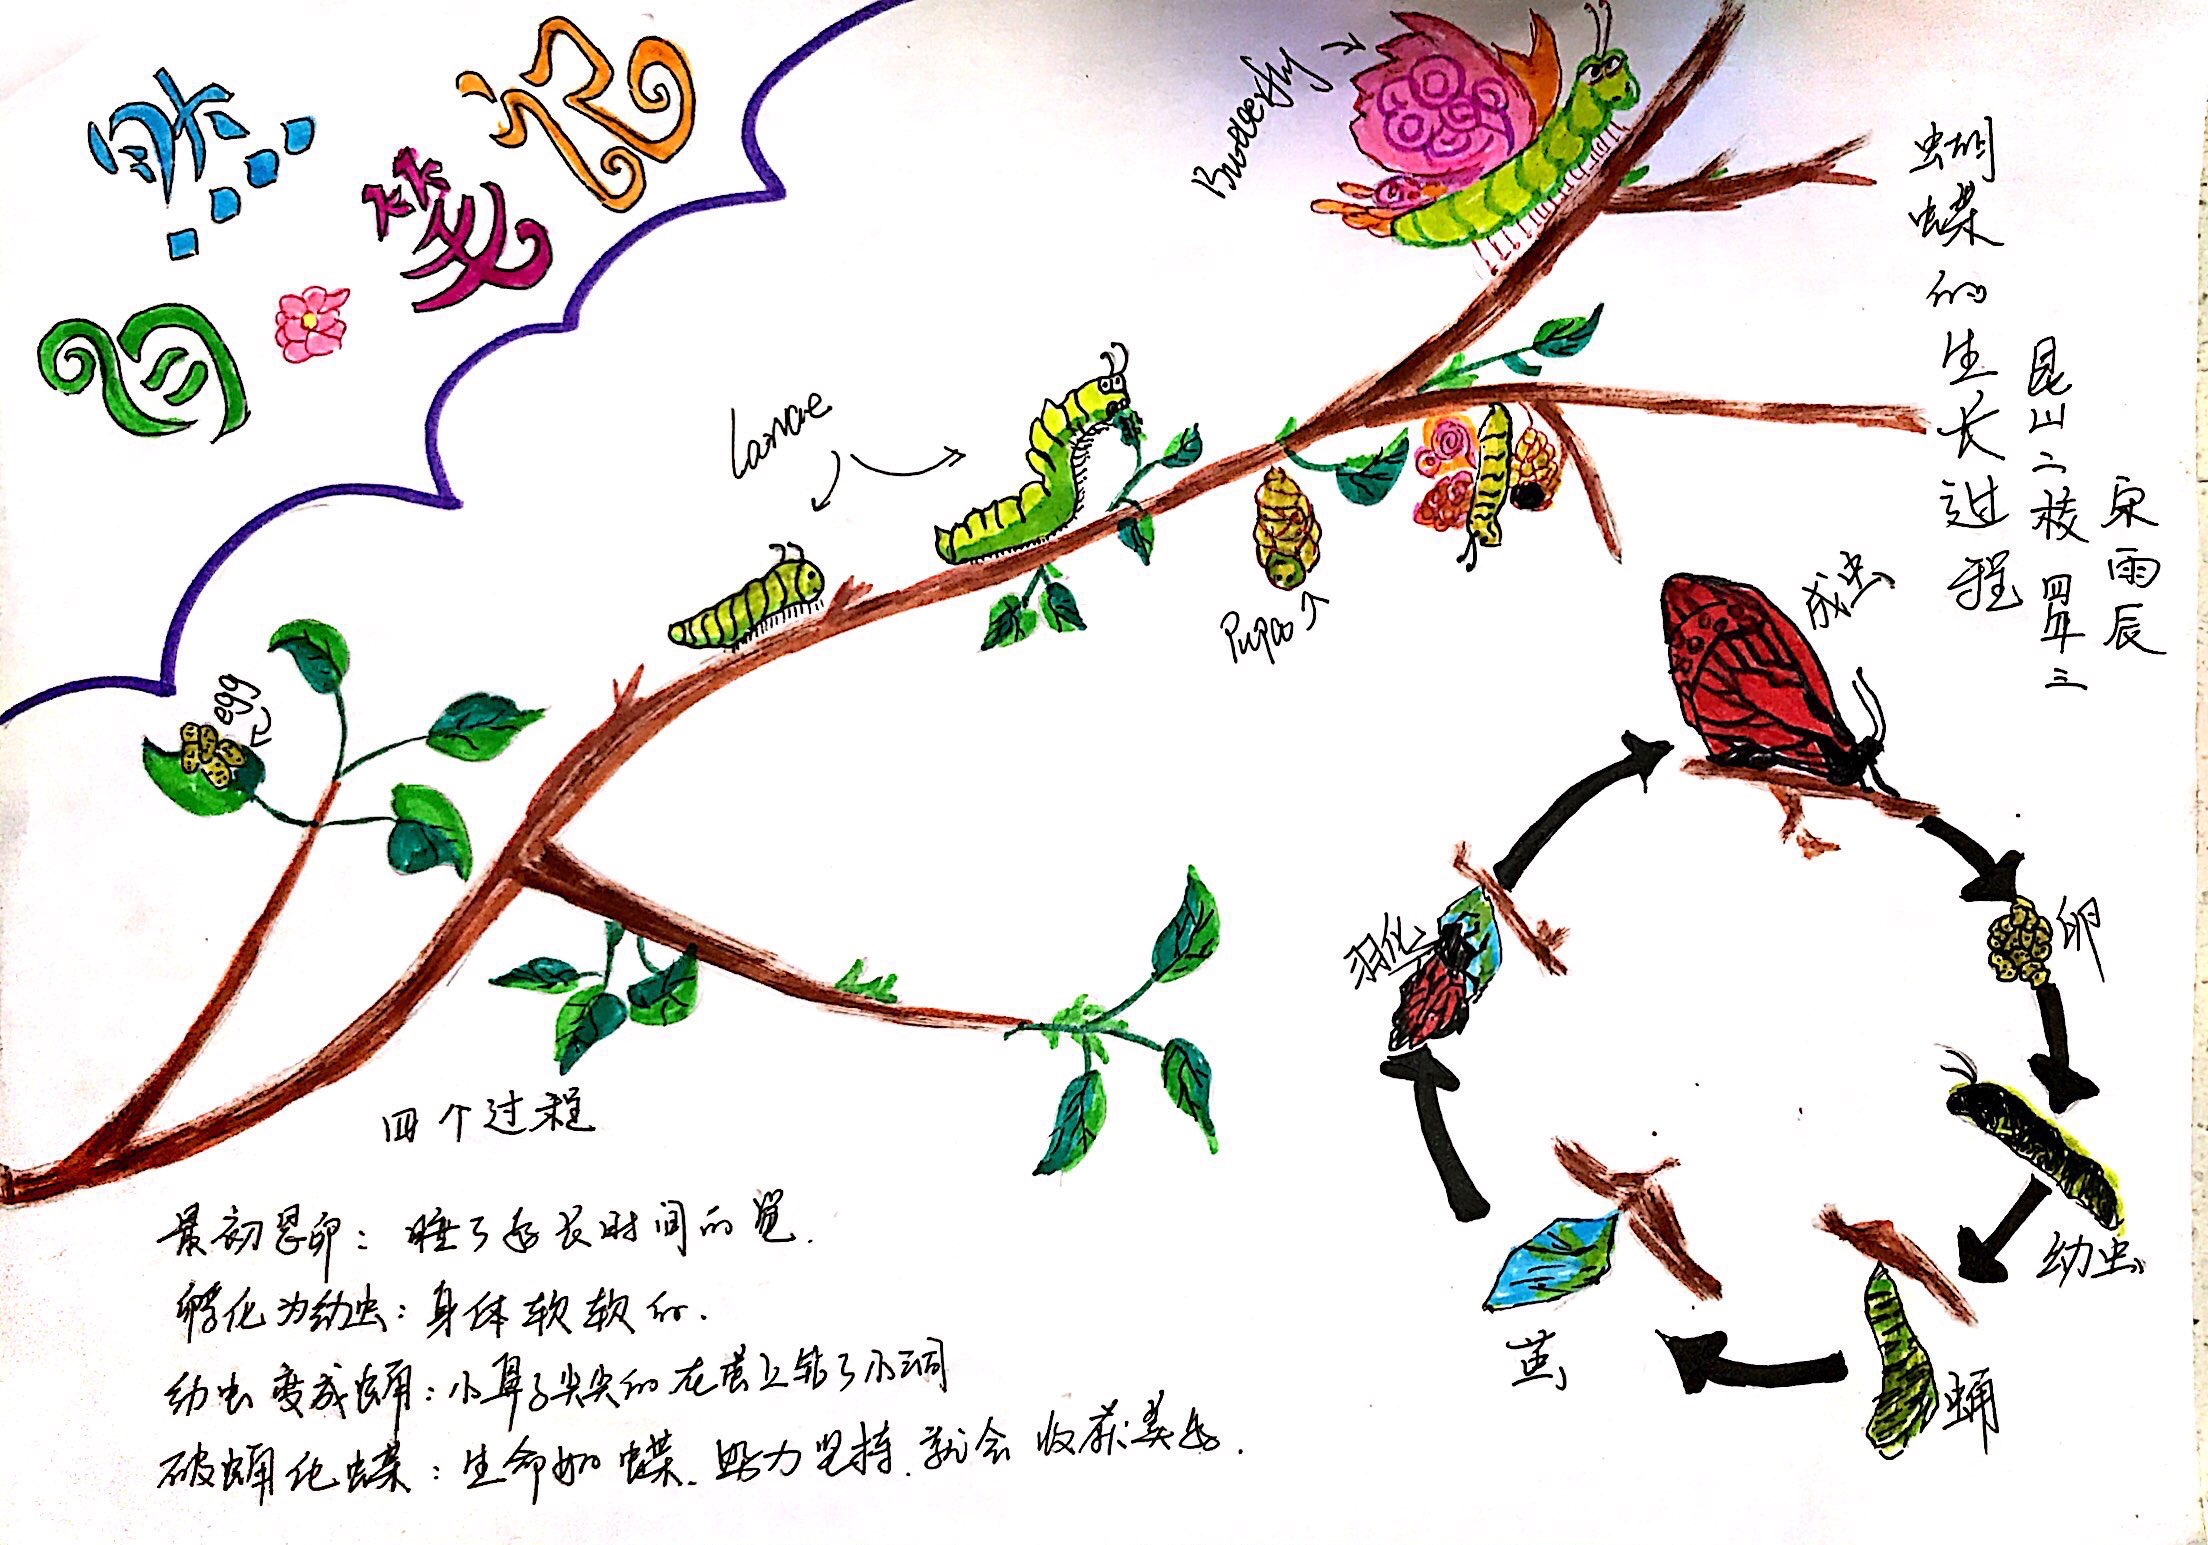 自然笔记
Butterfly
Larvae
egg
Pupa
蝴蝶的生长过程
昆山二校 四年三
雨辰
成虫
卵
幼虫
蛹
茧
羽化
四个过程
最初是卵：睡了好长时间的觉.
孵化为幼虫：身体软软的.
幼虫变成蛹：小鼻子尖尖的在茧上钻了小洞
破蛹化蝶：生命如蝶.努力坚持.就会收获美好.